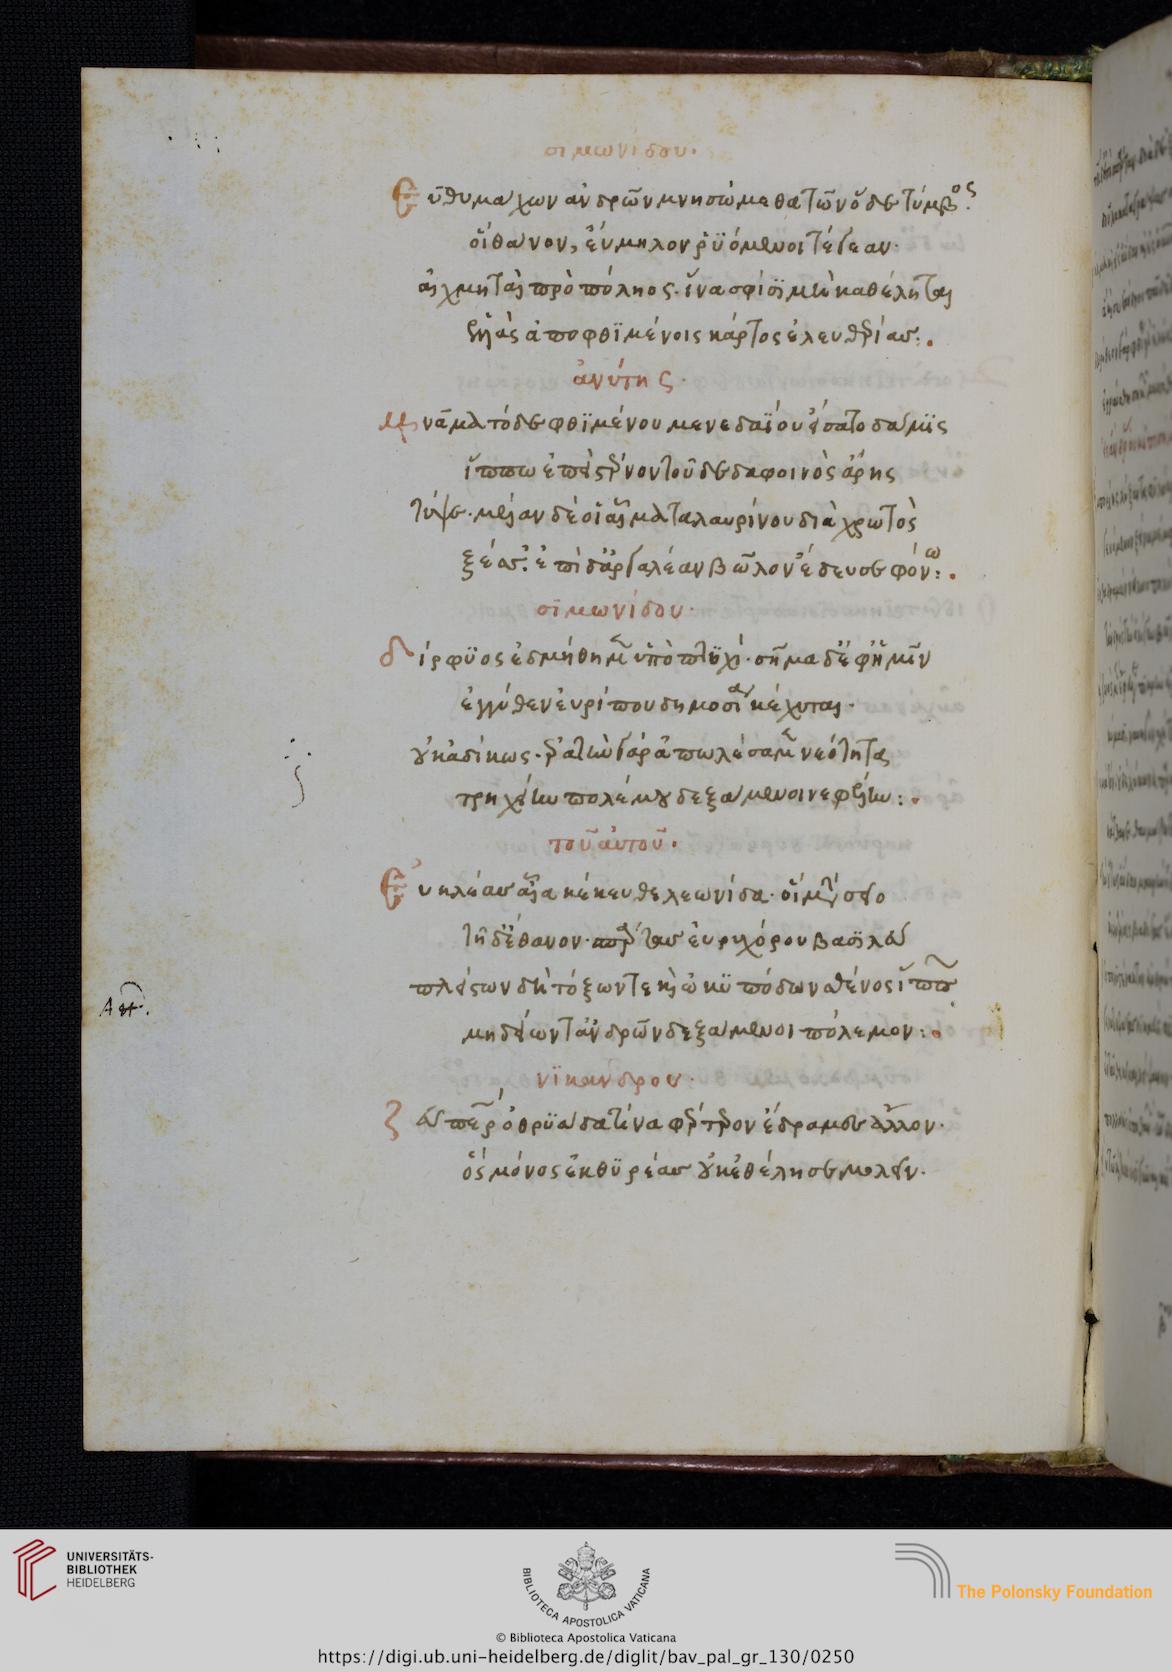 σιμωνίδου.
Εὐθυμάχων ἀνδρῶν μνησώμεθα τῶν ὅδε τύμβος.
οἳ θάνον, εὔμηλον ῥυόμενοι τέγεαν.
αἰχμηταὶ πρὸ πόληος. ἵνα σφίσι μὴ καθέληται
ἀποφθιμένοις κάρτος ἐλευθερίας:.
ἀνύτης.
Μνᾶμα τόδε φθιμένου μενεδαΐου εἵσατο δάμις
ἵππω ἐπεὶ στέρνον τοῦδε δαφοινὸς ἄρης
τύψε. μέλαν δέ οἱ αἷμα ταλαυρίνου διὰ χρωτὸς
ζέσσ'. ἐπὶ δ' ἀργαλέαν βῶλον ἔδευσε φόνω:.
σιμωνίδου.
δίρφυος ἐδμήθημεν ὑπὸ πτυχί. σῆμα δ' ἐφ' ἡμῖν
ἐγγύθεν εὐρίπου δημοσίαι κέχυται.
οὐκ ἀδίκως. ἐρατὴν γὰρ ἀπωλέσαμεν νεότητα
τρηχεῖην πολέμου δεξάμενοι νεφέλην:.
τοῦ αὐτοῦ.
Εὐκλέας αἶα κέκευθε λεωνίδα. οἳ μετὰ σεῖο
τῆδ' ἔθανον. σπάρτας εὐρυχόρου βασιλεῦ
πλείστων δὴ τόξων τε καὶ ὠκυπόδων σθένος ἵππων
μηδείων τ' ἀνδρῶν δεξάμενοι πόλεμον:.
νικάνδρου.
Ζεῦ πάτερ ὀθρυάδα τίνα φέρτερον ἔδρακες ἄλλον.
ὃς μόνος ἐκ θυρέας οὐκ ἐθέλησε μολεῖν.
UNIVERSITÄTS-
BIBLIOTHEK
HEIDELBERG
BIBLIOTECA APOSTOLICA VATICANA
The Polonsky Foundation
© Biblioteca Apostolica Vaticana
https://digi.ub.uni-heidelberg.de/diglit/bav_pal_gr_130/0250